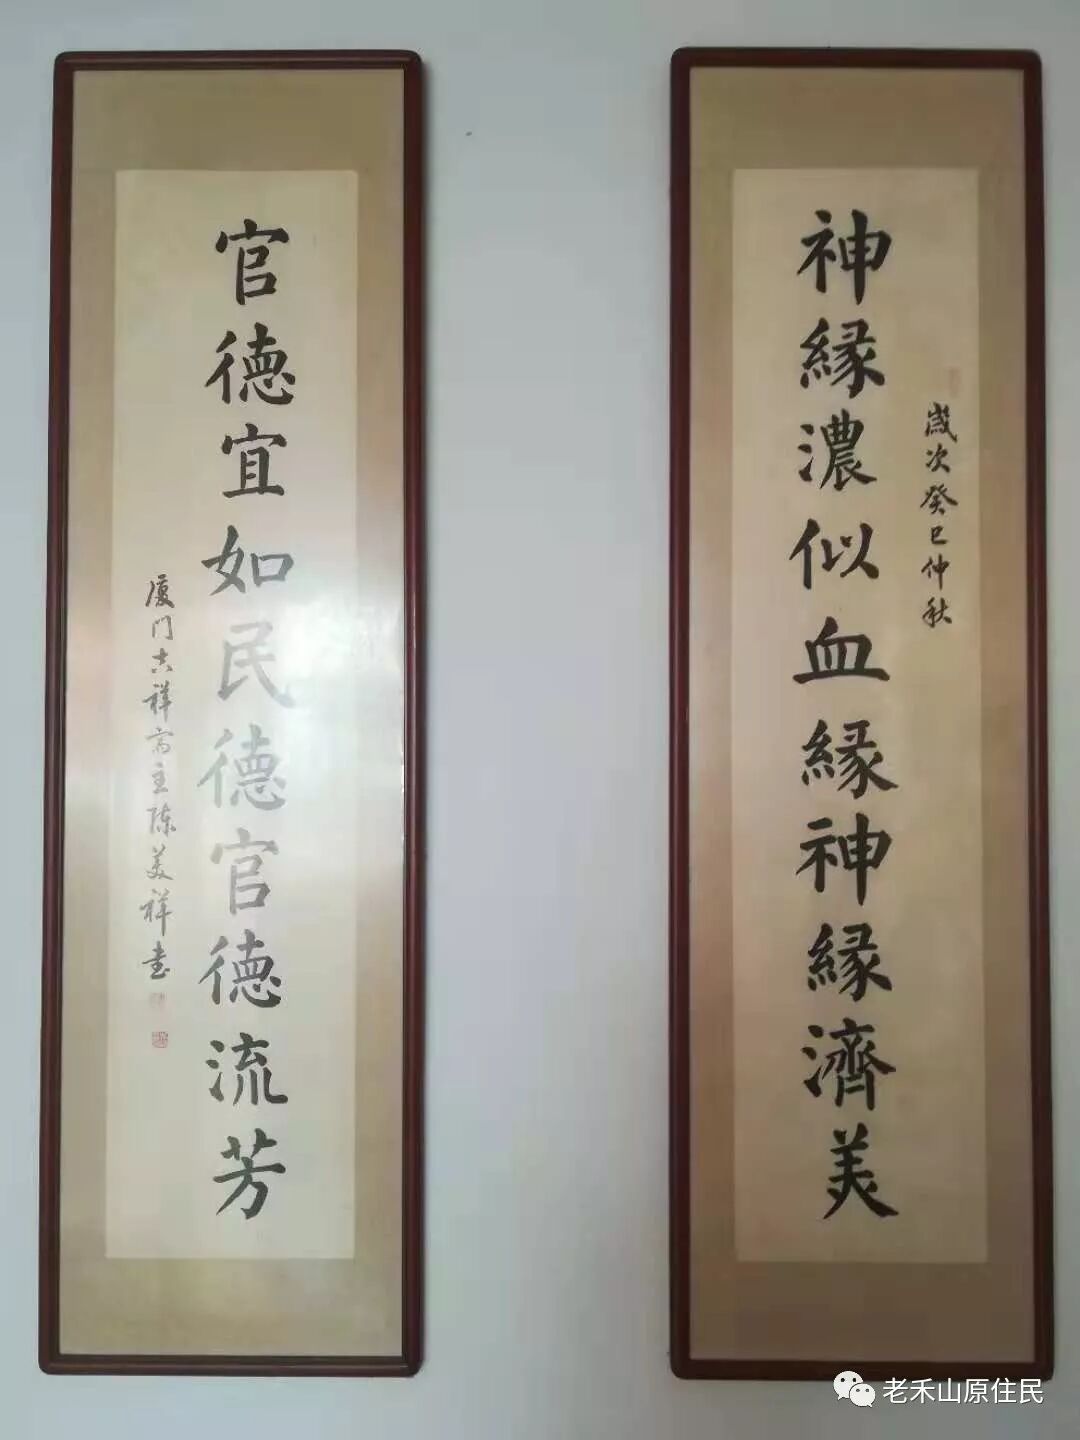 歲次癸巳仲秋
神緣濃似血緣神緣濟美
官德宜如民德官德流芳
厦门吉祥斋主陈美祥书
老禾山原住民